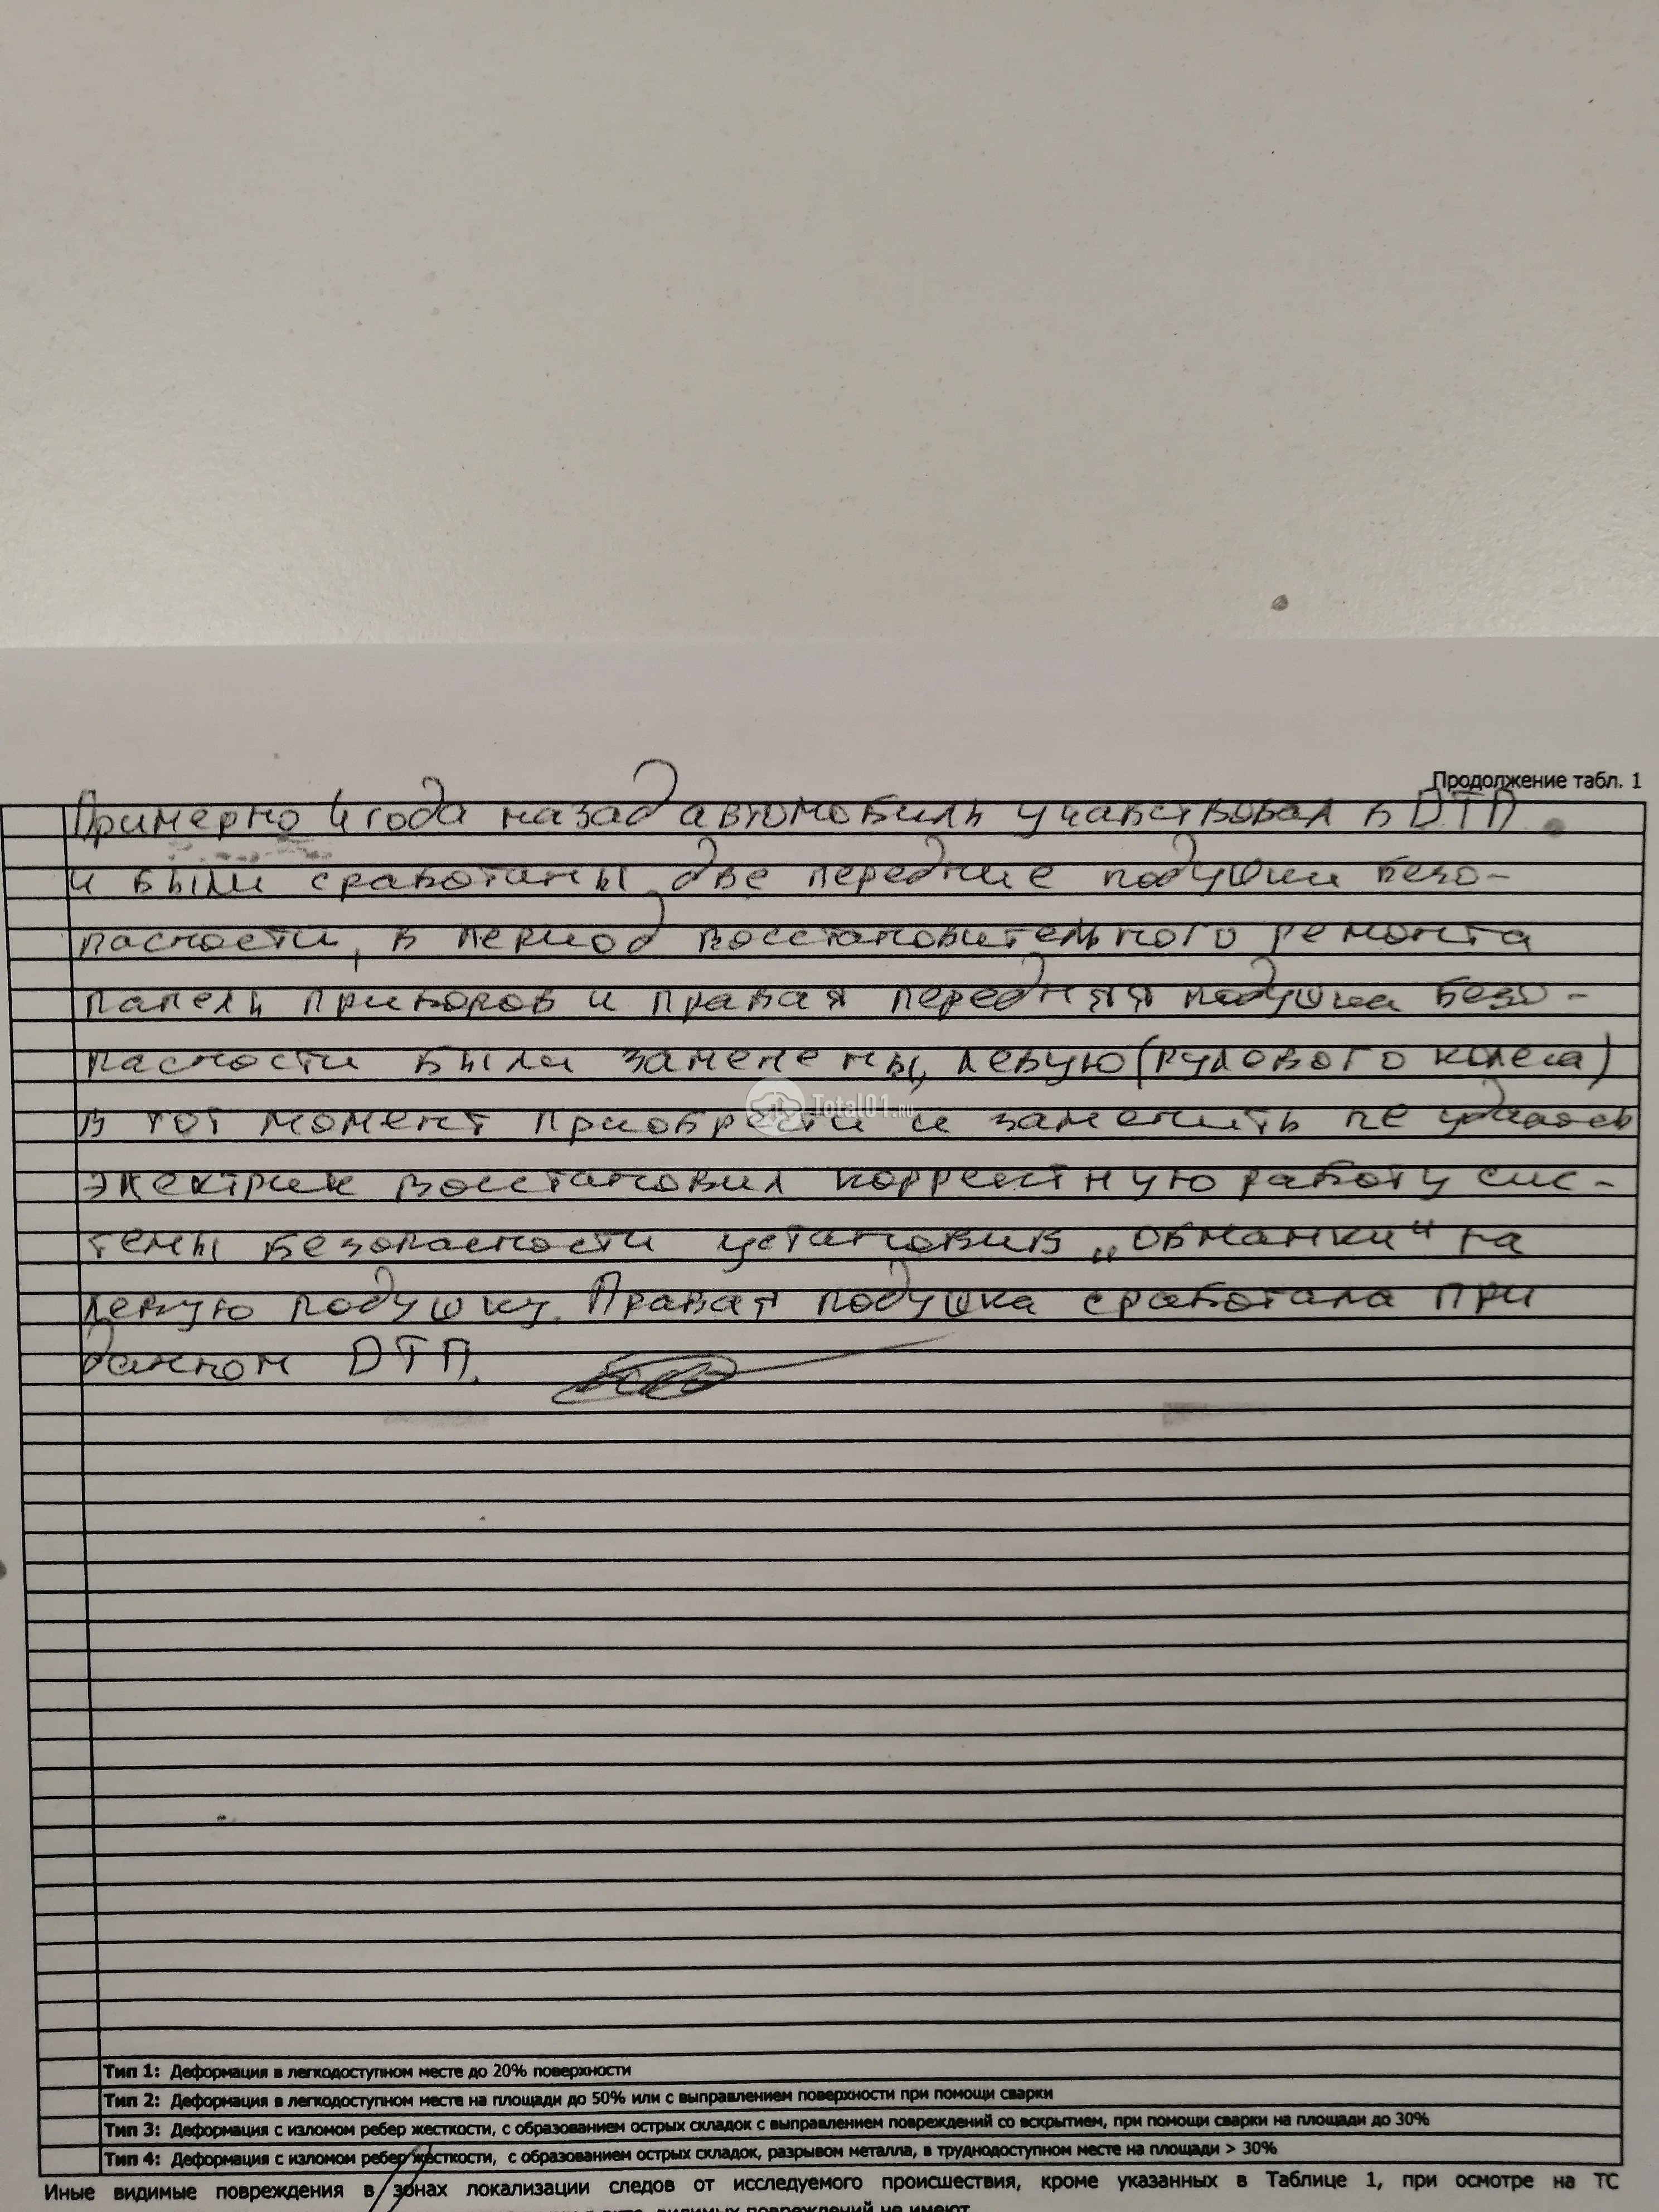 Продолжение табл. 1
Примерно 4 года назад автомобиль учавствовал в ДТП
и были сработаны две передние подушки безо-
пасности, в период восстановительного ремонта
панель приборов и правая передняя подушка безо-
пасности были заменены, левую (рулевого колеса)
в тот момент приобрести и заменить не удалось
Total01.RU
электрик восстановил корректную работу сис-
темы безопасности установив „обманки" на
левую подушку. Правая подушка сработала при
данном ДТП.
Тип 1: Деформация в легкодоступном месте до 20% поверхности
Тип 2: Деформация в легкодоступном месте на площади до 50% или с выправлением поверхности при помощи сварки
Тип 3: Деформация с изломом ребер жесткости, с образованием острых складок с выправлением повреждений со вскрытием, при помощи сварки на площади до 30%
Тип 4: Деформация с изломом ребер жесткости, с образованием острых складок, разрывом металла, в труднодоступном месте на площади > 30%
Иные видимые повреждения в зонах локализации следов от исследуемого происшествия, кроме указанных в Таблице 1, при осмотре на ТС
видимых повреждений не имеют